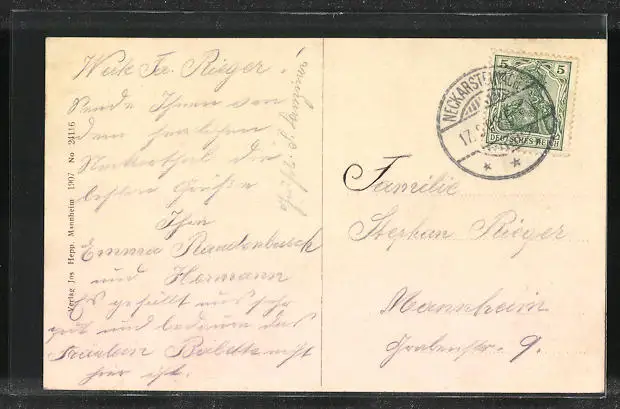 Werte Fa. Rieger!
Sende Ihnen von
dem herrlichen
Neckarthal die
besten Grüße
Ihre
Emma Raudenbusch
und Hermann
Es gefällt uns sehr
gut und bedauern das
Fräulein Babette nicht
hier ist.
Verlag Jos Hepp. Mannheim 1907 No 24116
NECKARSTEINACH
17.
5 5
DEUTSCHES REICH
Familie
Stephan Rieger
Mannheim
Grabenstr. 9.